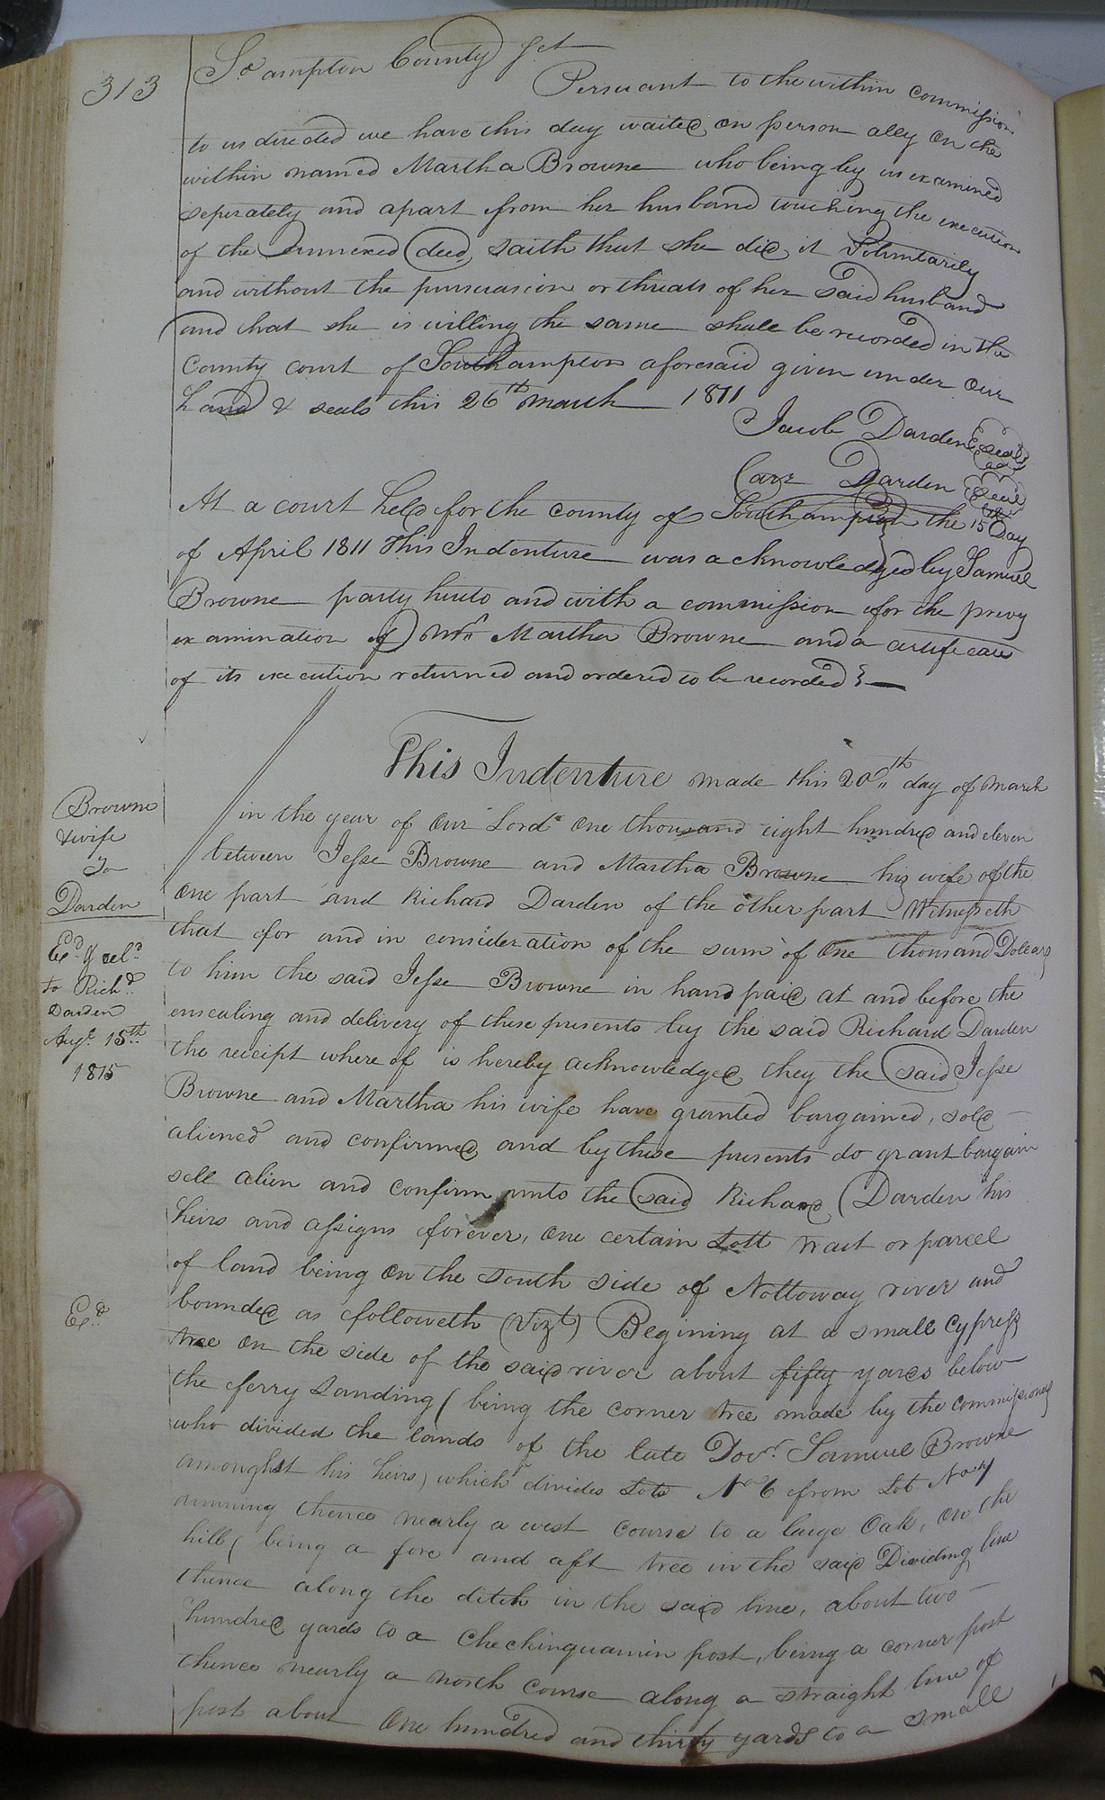 313
So ampton County Sct
Persuant to the within commission
to us directed we have this day waited on person ally on the
within named Martha Browne who being by us examined
seperately and apart from her husband touching the execution
of the Annexed deed, saith that she did it Voluntarily
and without the pursuasion or threats of her said husband
and that she is willing the same shall be recorded in the
County court of Southampton aforesaid given under our
hand & seals this 26th March 1811
Jacob Darden seal
Carr Darden seal
At a court held for the county of Southampton the 15th Day
of April 1811 This Indenture was acknowledged by Samuel
Browne party hereto and with a commission for the previy
examination of Mrs Martha Browne and a certificate
of its execution returned and ordered to be recorded } —
This Indenture made this 20th day of March
in the year of our Lord one thousand eight hundred and eleven
between Jesse Browne and Martha Browne his wife of the
one part and Richard Darden of the other part Witnesseth
that for and in consideration of the sum of One thousand Dollars
to him the said Jesse Browne in hand paid at and before the
ensealing and delivery of these presents by the said Richard Darden
the receipt where of is hereby acknowledged they the said Jesse
Browne and Martha his wife have granted bargained, sold
aliened and confirmed and by these presents do grant bargain
sell alien and confirm unto the said Richard Darden his
heirs and assigns forever, one certain Lott tract or parcel
of land being on the south side of Nottoway river and
bounded as followeth (Vizt) Begining at a small cypress
tree on the side of the said river about fifty yards below
the ferry Landing (being the corner tree made by the commissioners
who divided the lands of the late Doctr. Samuel Browne
amonghst his heirs) which divides Lots No 6 from Lot No 7
running thence nearly a west course to a large Oak, on the
hill (being a fore and aft tree in the said Dividing line
thence along the ditch in the said line, about two
hundred yards to a Chechinquamin post, being a corner post
thence nearly a north course along a straight line of
posts about One hundred and thirty yards to a small
Browne
& wife
To
Darden
Exd. & del.
to Richd.
Darden
Augt. 15th
1815
Exd.